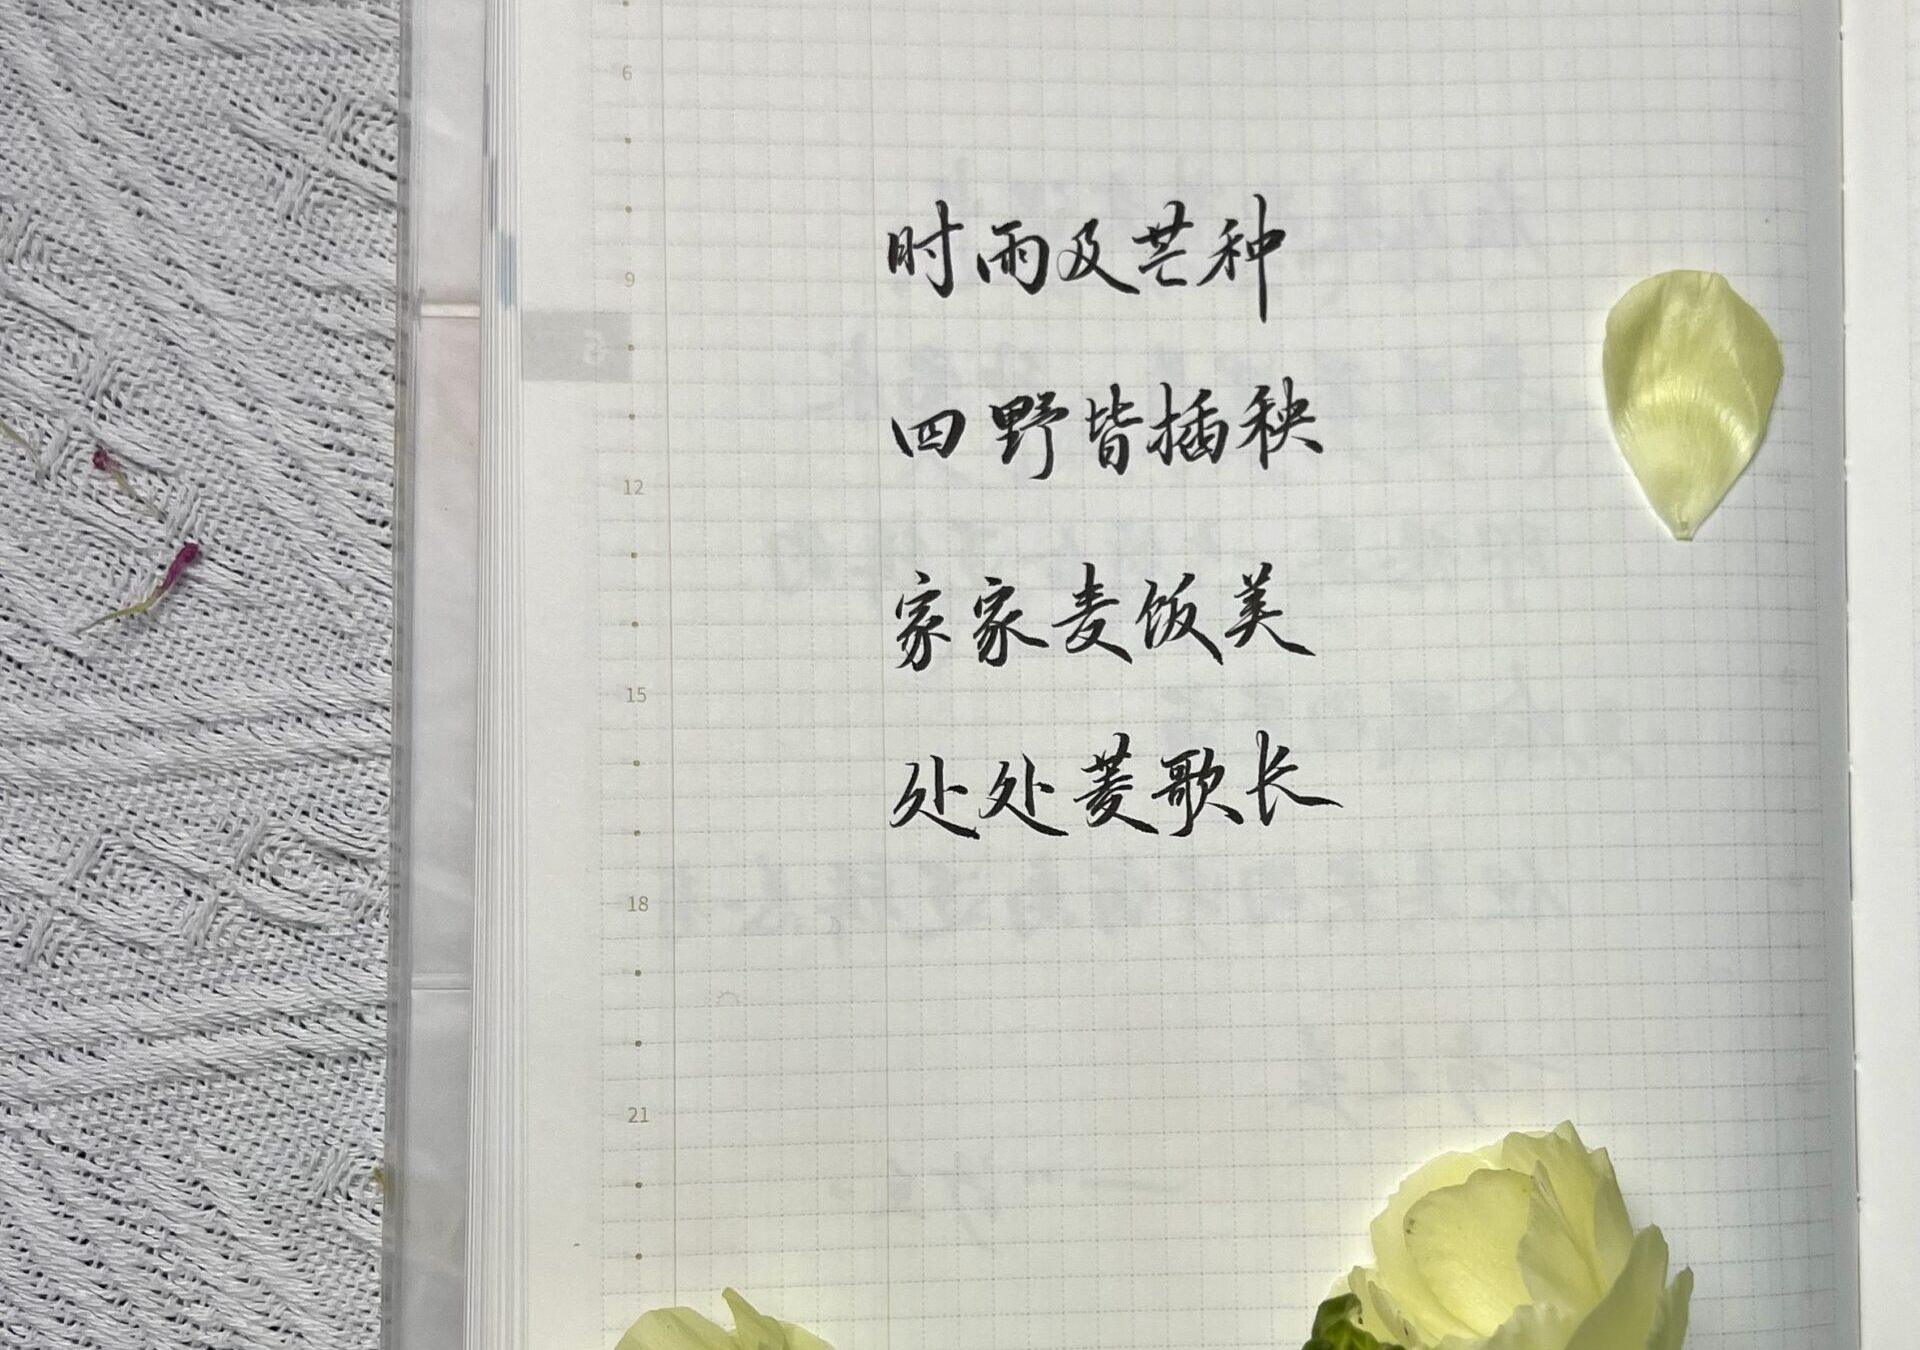 6
9
6
12
15
18
21
时雨及芒种
四野皆插秧
家家麦饭美
处处菱歌长